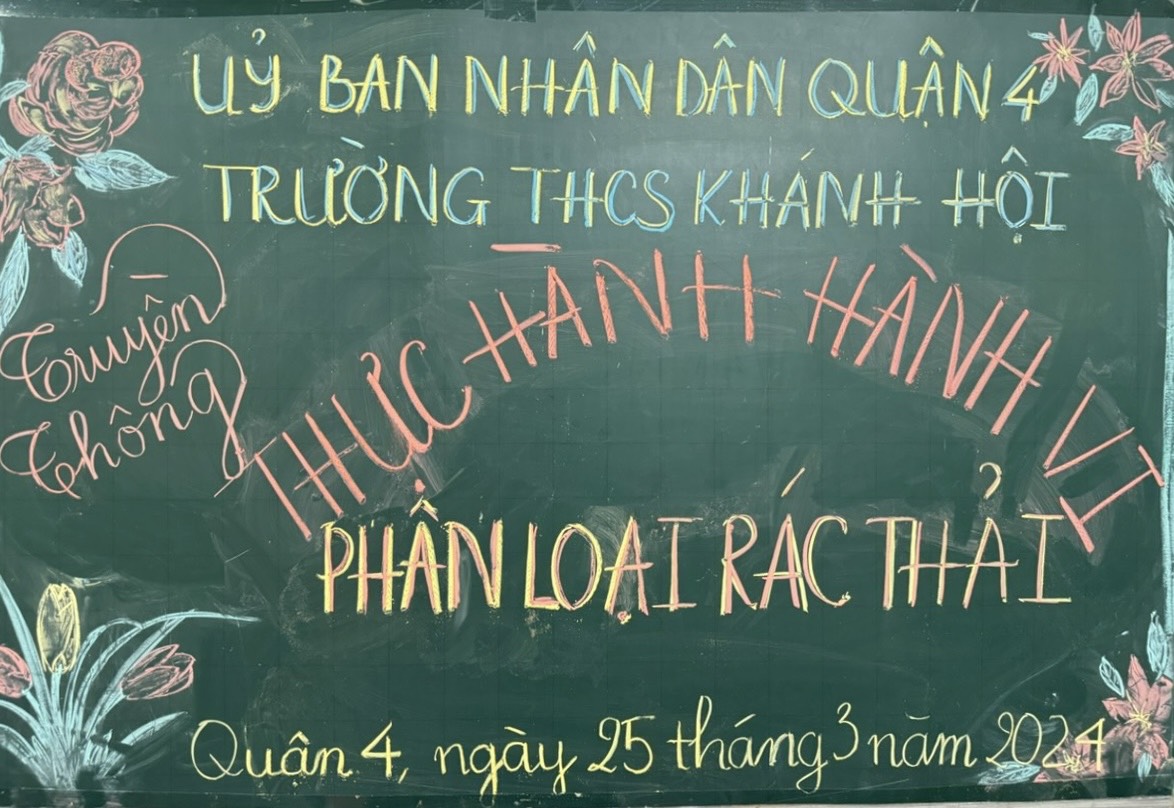 UỶ BAN NHÂN DÂN QUẬN 4
TRƯỜNG THCS KHÁNH HỘI
Truyền
Thông
THỰC HÀNH HÀNH VI
PHÂN LOẠI RÁC THẢI
Quận 4, ngày 25 tháng 3 năm 2024